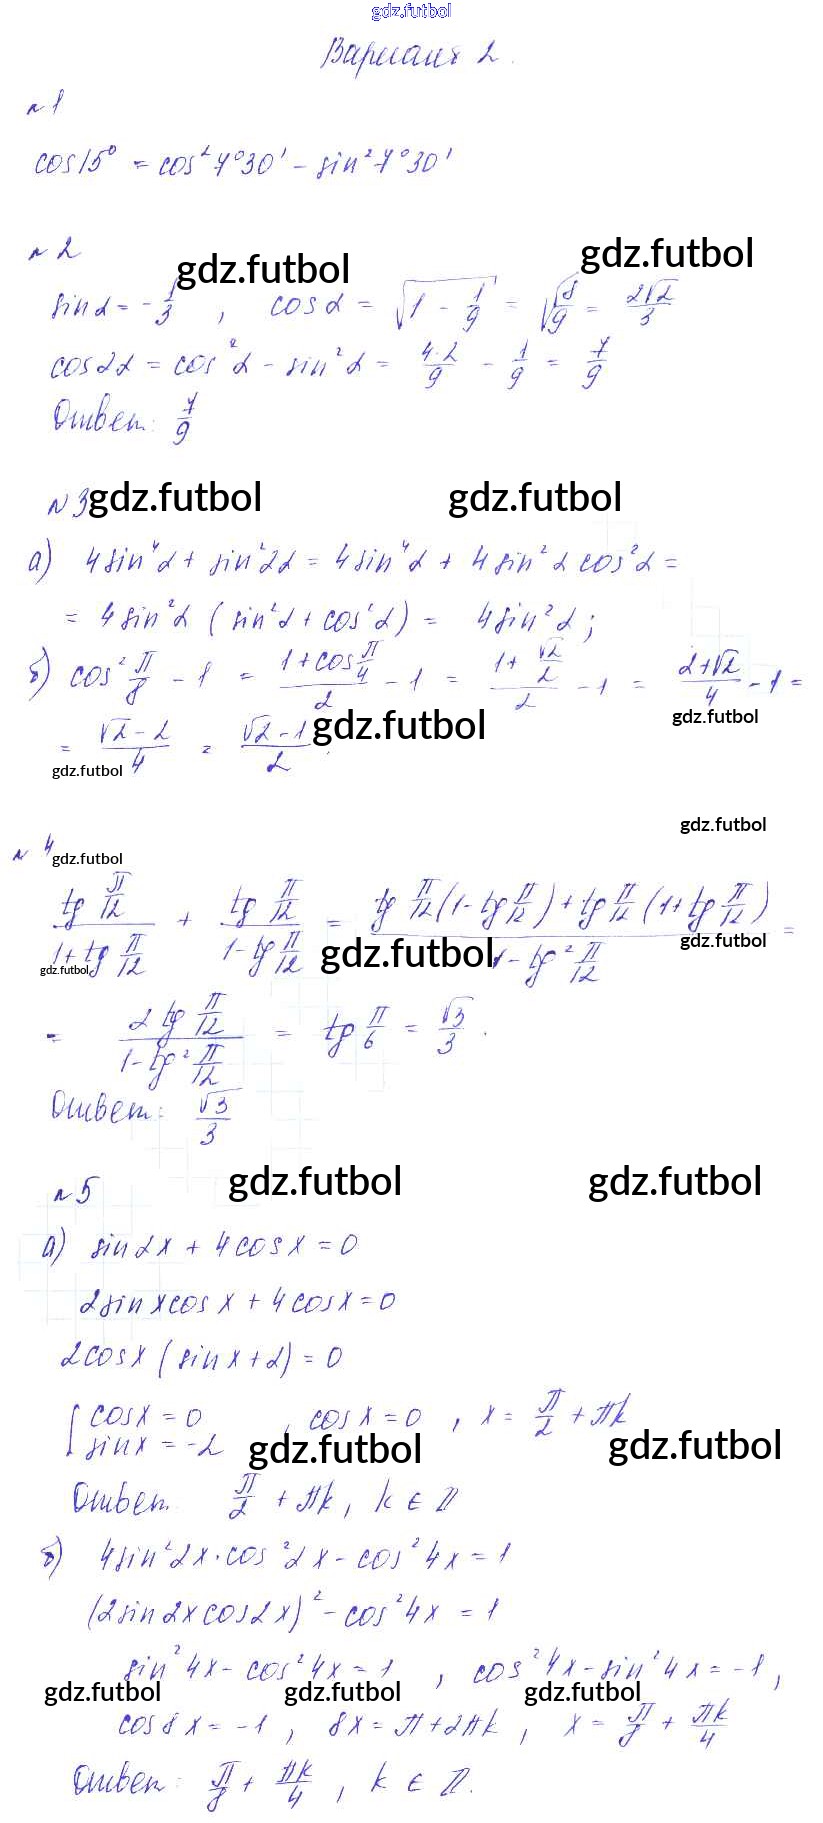 gdz.futbol
Вариант 2.
№1
cos15° = cos²7°30' − sin²7°30'
№2
gdz.futbol gdz.futbol
sinα = −1/3 , cosα = √(1 − 1/9) = √(8/9) = 2√2/3
cos2α = cos²α − sin²α = 4·2/9 − 1/9 = 7/9
Ответ: 7/9
№3 gdz.futbol gdz.futbol
а) 4sin⁴α + sin²2α = 4sin⁴α + 4sin²α cos²α =
= 4sin²α (sin²α + cos²α) = 4sin²α;
б) cos² π/8 − 1 = (1+cos π/4)/2 − 1 = (1+ √2/2)/2 − 1 = (2+√2)/4 − 1 =
gdz.futbol
= (√2−2)/4 = (√2−1)/2 gdz.futbol
gdz.futbol
gdz.futbol
№4 gdz.futbol
tg π/12 / (1+tg π/12) + tg π/12 / (1−tg π/12) = (tg π/12 (1−tg π/12) + tg π/12 (1+tg π/12)) / (1−tg² π/12) =
gdz.futbol gdz.futbol gdz.futbol
= 2tg π/12 / (1−tg² π/12) = tg π/6 = √3/3.
Ответ: √3/3
№5 gdz.futbol gdz.futbol
а) sin2x + 4cosx = 0
2sinxcosx + 4cosx = 0
2cosx (sinx+2) = 0
[cosx = 0 , cosx = 0 , x = π/2 + πk
sinx = −2 gdz.futbol gdz.futbol
Ответ π/2 + πk, k ∈ Z
б) 4sin²2x·cos²2x − cos²4x = 1
(2sin2xcos2x)² − cos²4x = 1
sin²4x − cos²4x = 1 , cos²4x − sin²4x = −1 ,
gdz.futbol gdz.futbol gdz.futbol
cos8x = −1 , 8x = π+2πk , x = π/8 + πk/4
Ответ: π/8 + πk/4 , k ∈ Z.